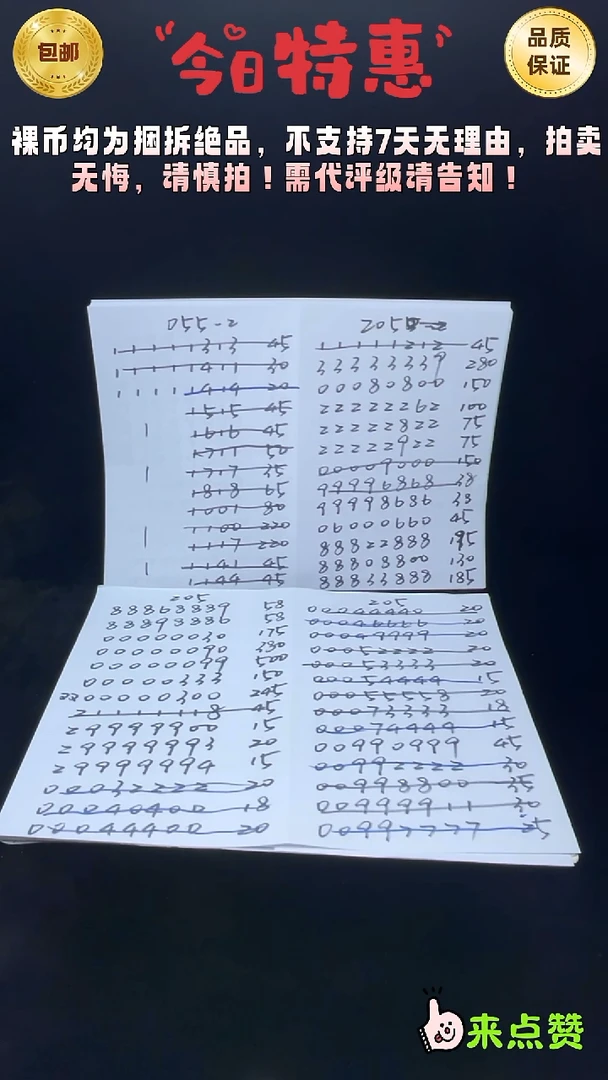 包邮
今日特惠
品质
保证
裸币均为捆拆绝品，不支持7天无理由，拍卖
无悔，请慎拍！需代评级请告知！
055-2
1 1 1 1 1 1313 45
1 1 1 1 1 1411 30
1 1 1 1 1414 20
1515 45
1 1616 45
1711 50
1 1717 35
1818 65
1001 80
1 1100 220
1117 220
1 1141 45
1144 45
205
11111212 45
33333339 280
00080800 150
22222262 100
22222822 75
22222922 75
00009000 150
99996868 38
99998686 38
06000660 45
88822888 195
88808800 130
88833888 185
205
88863889 58
88893886 58
00000030 175
00000090 380
00000099 500
00000333 150
00000300 245
2111118 45
29999900 15
29999993 20
29999994 15
00032222 20
00040400 18
00044400 20
205
00044440 20
00046666 20
00049999 20
00052222 20
00053333 20
00054444 15
00055558 20
00073333 18
00074444 15
00990999 45
00992222 30
00998800 35
00999911 30
00997777 25
来点赞